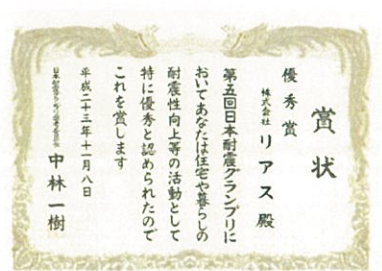 賞状
優秀賞
株式会社 リアス 殿
第五回日本耐震グランプリに
おいてあなたは住宅や暮らしの
耐震性向上等の活動として
特に優秀と認められたので
これを賞します
平成二十三年十一月八日
中林一樹